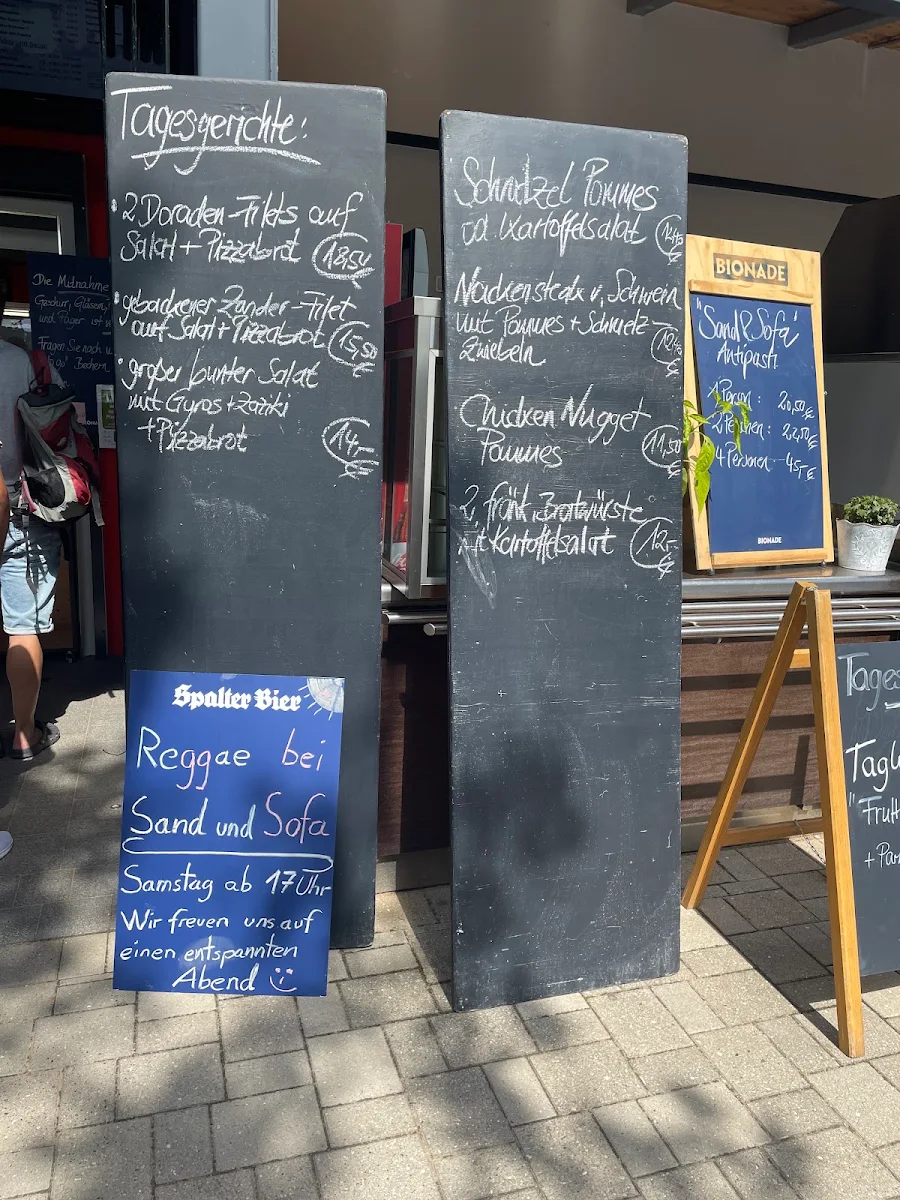 Tagesgerichte:
2 Doraden-Filets auf
Salat + Pizzabrot 18,50 €
gebackener Zander-Filet
auf Salat + Pizzabrot 15,50 €
großer bunter Salat
mit Gyros + Zaziki
+ Pizzabrot 14,- €
Schnitzel Pommes
od. Kartoffelsalat
Nackensteak v. Schwein
mit Pommes + Schmelz-
Zwiebeln
Chicken Nugget
Pommes 11,50 €
2 fränk. Bratwürste
mit Kartoffelsalat 12,- €
BIONADE
"Sand & Sofa"
Antipasti
1 Person : 20,50 €
2 Personen :
4 Personen 45,- €
BIONADE
Spalter Bier
Reggae bei
Sand und Sofa
Samstag ab 17 Uhr
Wir freuen uns auf
einen entspannten
Abend
Die Mitnahme
Geschirr, Gläser
Fragen Sie nach
Bechern
Tages
Tagl
"Frutt
+ Par